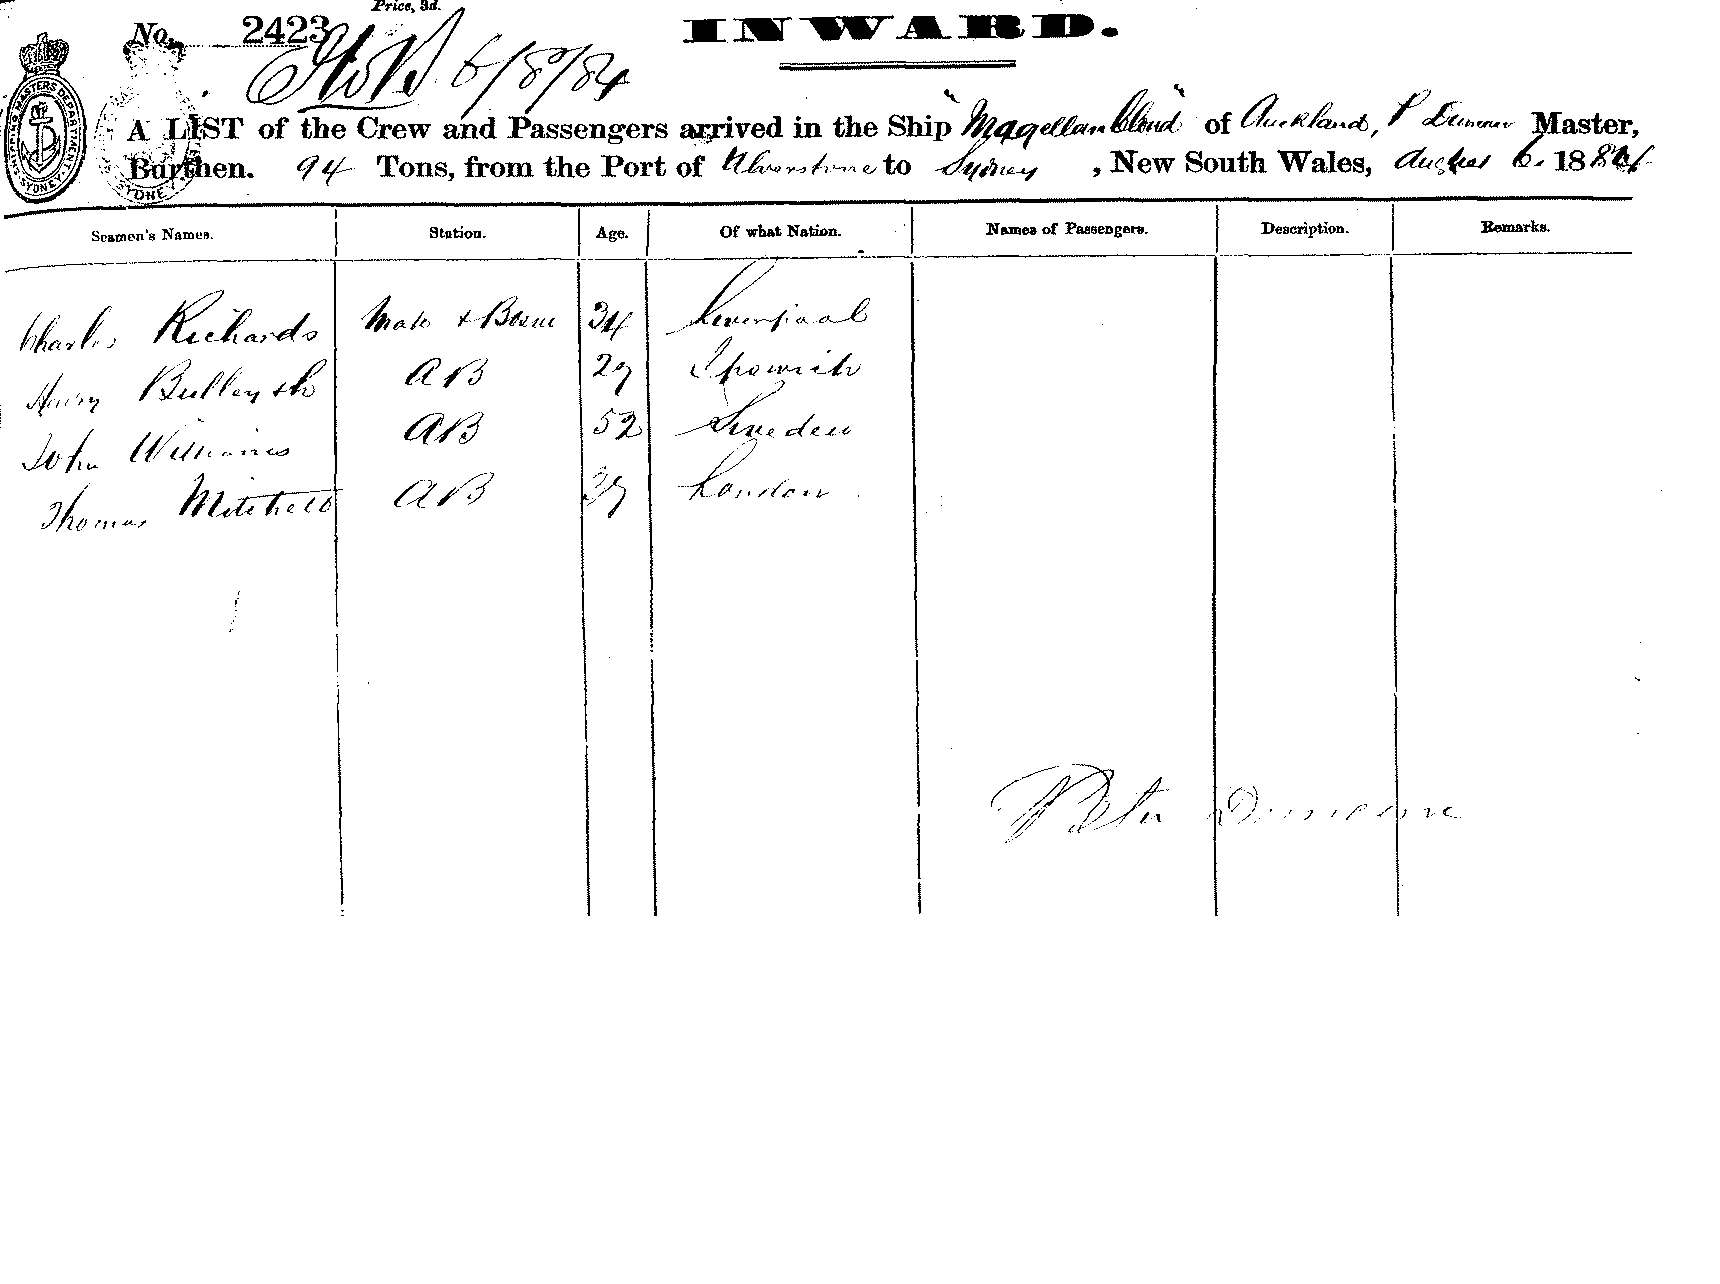 Price, 3d.
No. 2423 INWARD.
6/8/84
A LIST of the Crew and Passengers arrived in the Ship "Magellan Cloud" of Auckland, P Duncan Master,
Burthen. 94 Tons, from the Port of Ulverstone to Sydney, New South Wales, August 6. 1884
Seamen's Names. Station. Age. Of what Nation. Names of Passengers. Description. Remarks.
Charles Richards Mate & Bosun 34 Liverpool
Henry AB 27 Ipswich
John Williams AB 52 Sweden
Thomas Mitchell AB 37 London
Peter Duncan
SHIPPING MASTERS DEPARTMENT
SYDNEY